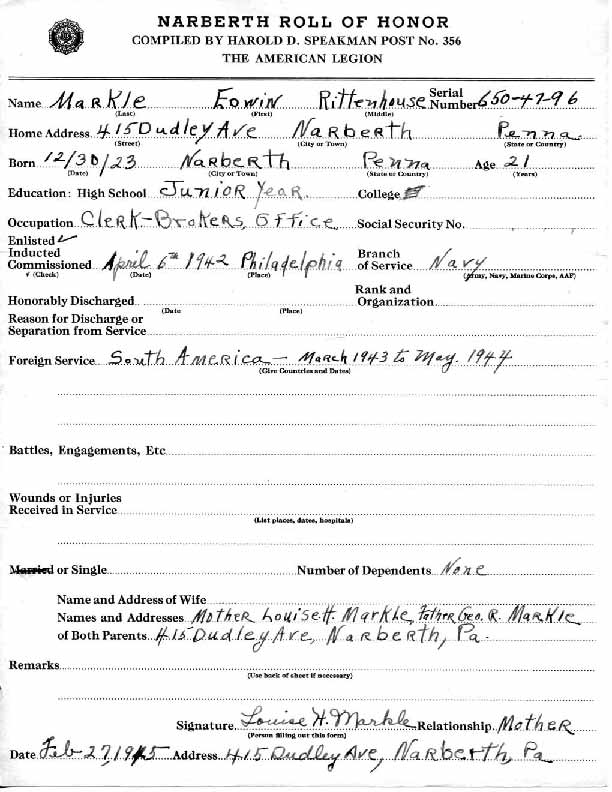 NARBERTH ROLL OF HONOR
COMPILED BY HAROLD D. SPEAKMAN POST No. 356
THE AMERICAN LEGION
Name Markle Edwin Rittenhouse Serial Number 650-47-96
(Last) (First) (Middle)
Home Address 415 Dudley Ave Narberth Penna.
(Street) (City or Town) (State or Country)
Born 12/30/23 Narberth Penna Age 21
(Date) (City or Town) (State or Country) (Years)
Education: High School Junior Year. College
Occupation Clerk-Brokers, Office Social Security No.
Enlisted ✓
Inducted
Commissioned April 6th 1942 Philadelphia Branch of Service Navy
✓ (Check) (Date) (Place) (Army, Navy, Marine Corps, AAF)
Honorably Discharged Rank and Organization
(Date (Place)
Reason for Discharge or
Separation from Service
Foreign Service South America - March 1943 to May. 1944
(Give Countries and Dates)
Battles, Engagements, Etc
Wounds or Injuries
Received in Service
(List places, dates, hospitals)
Married or Single Number of Dependents None
Name and Address of Wife
Names and Addresses Mother Louise H. Markle, Father Geo. R. Markle
of Both Parents 415 Dudley Ave, Narberth, Pa.
Remarks
(Use back of sheet if necessary)
Signature Louise H. Markle Relationship Mother
(Person filling out this form)
Date Feb 27, 1945 Address 415 Dudley Ave, Narberth, Pa